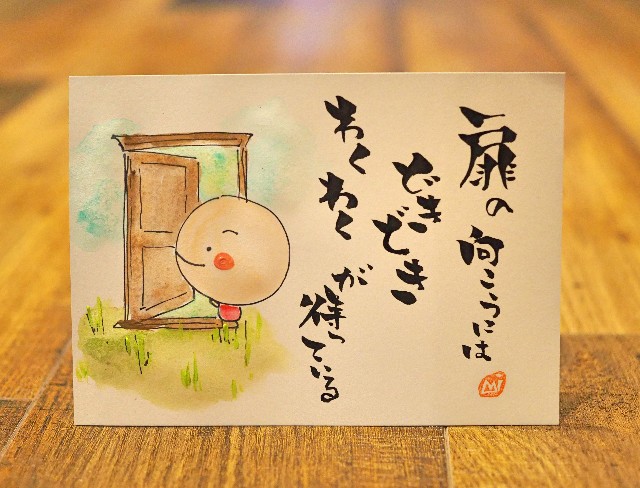 扉の向こうには
どきどき
わくわく
が待っている
MI